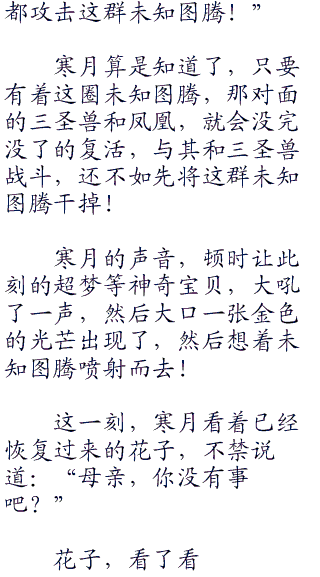 都攻击这群未知图腾！”
寒月算是知道了，只要
有着这圈未知图腾，那对面
的三圣兽和凤凰，就会没完
没了的复活，与其和三圣兽
战斗，还不如先将这群未知
图腾干掉！
寒月的声音，顿时让此
刻的超梦等神奇宝贝，大吼
了一声，然后大口一张金色
的光芒出现了，然后想着未
知图腾喷射而去！
这一刻，寒月看着已经
恢复过来的花子，不禁说
道：“母亲，你没有事
吧？”
花子，看了看